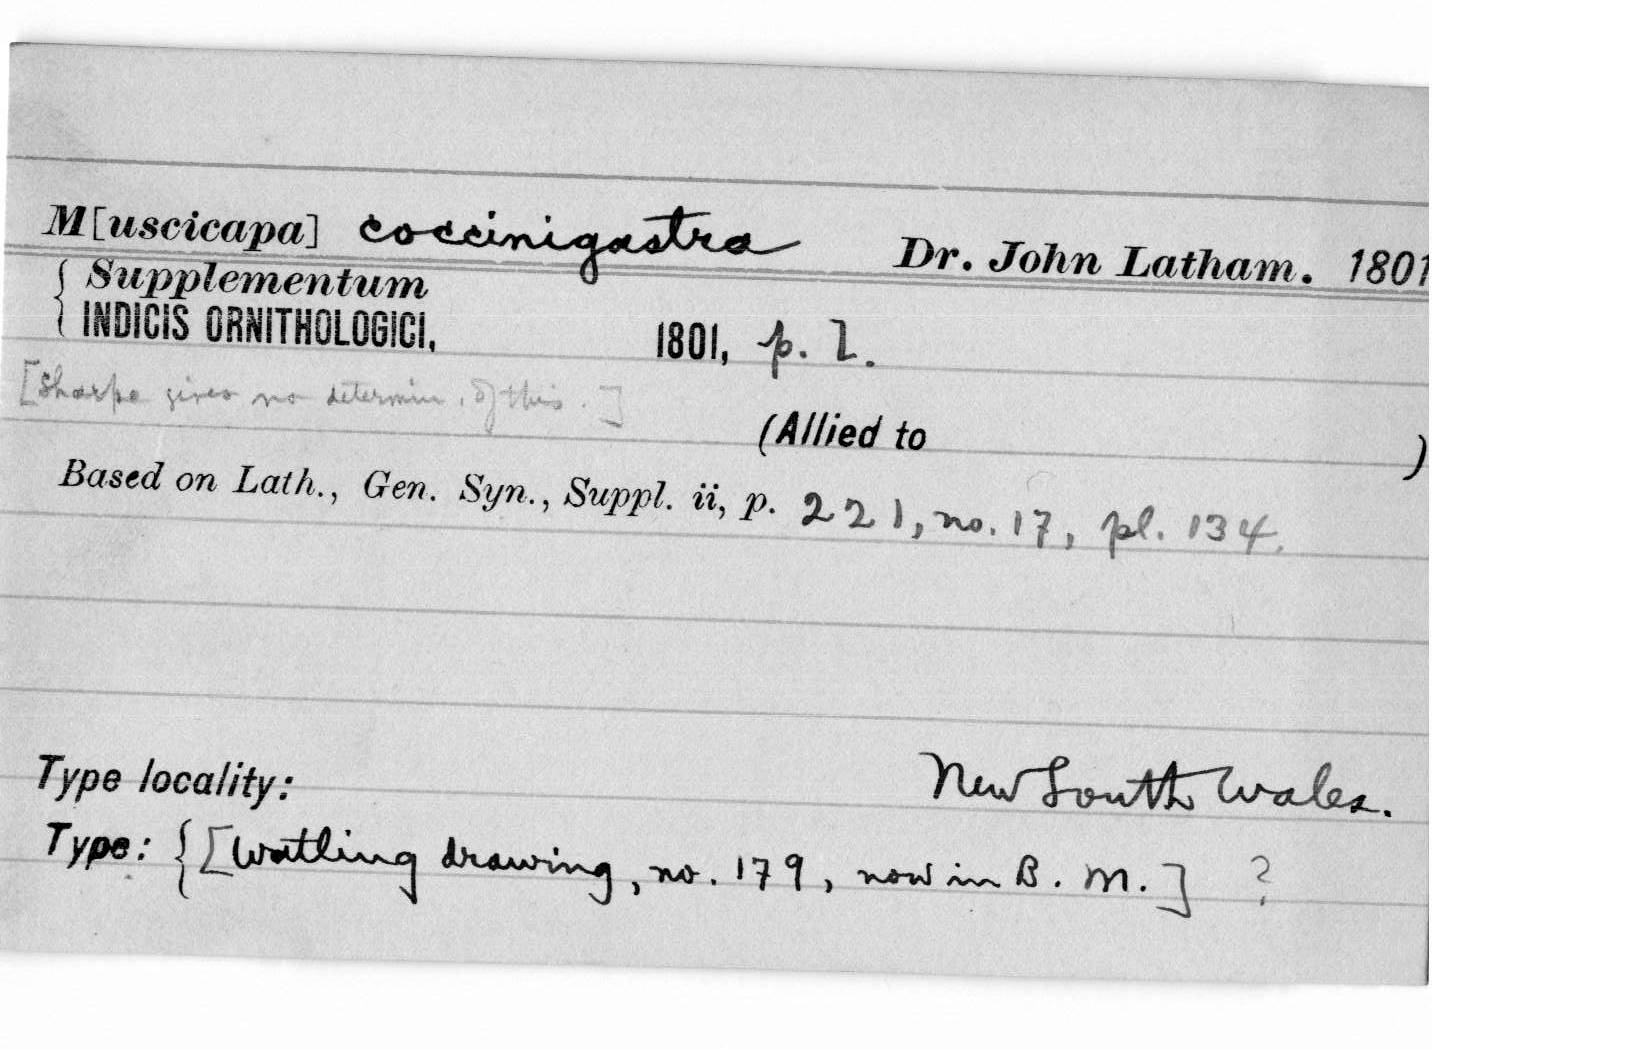 M[uscicapa] coccinigastra Dr. John Latham. 1801
{ Supplementum
{ INDICIS ORNITHOLOGICI, 1801, p. l.
[Sharpe gives no determin. of this.]
(Allied to )
Based on Lath., Gen. Syn., Suppl. ii, p. 221, no. 17, pl. 134.
Type locality: New South Wales.
Type: {[Watling drawing, no. 179, now in B. M.] ?